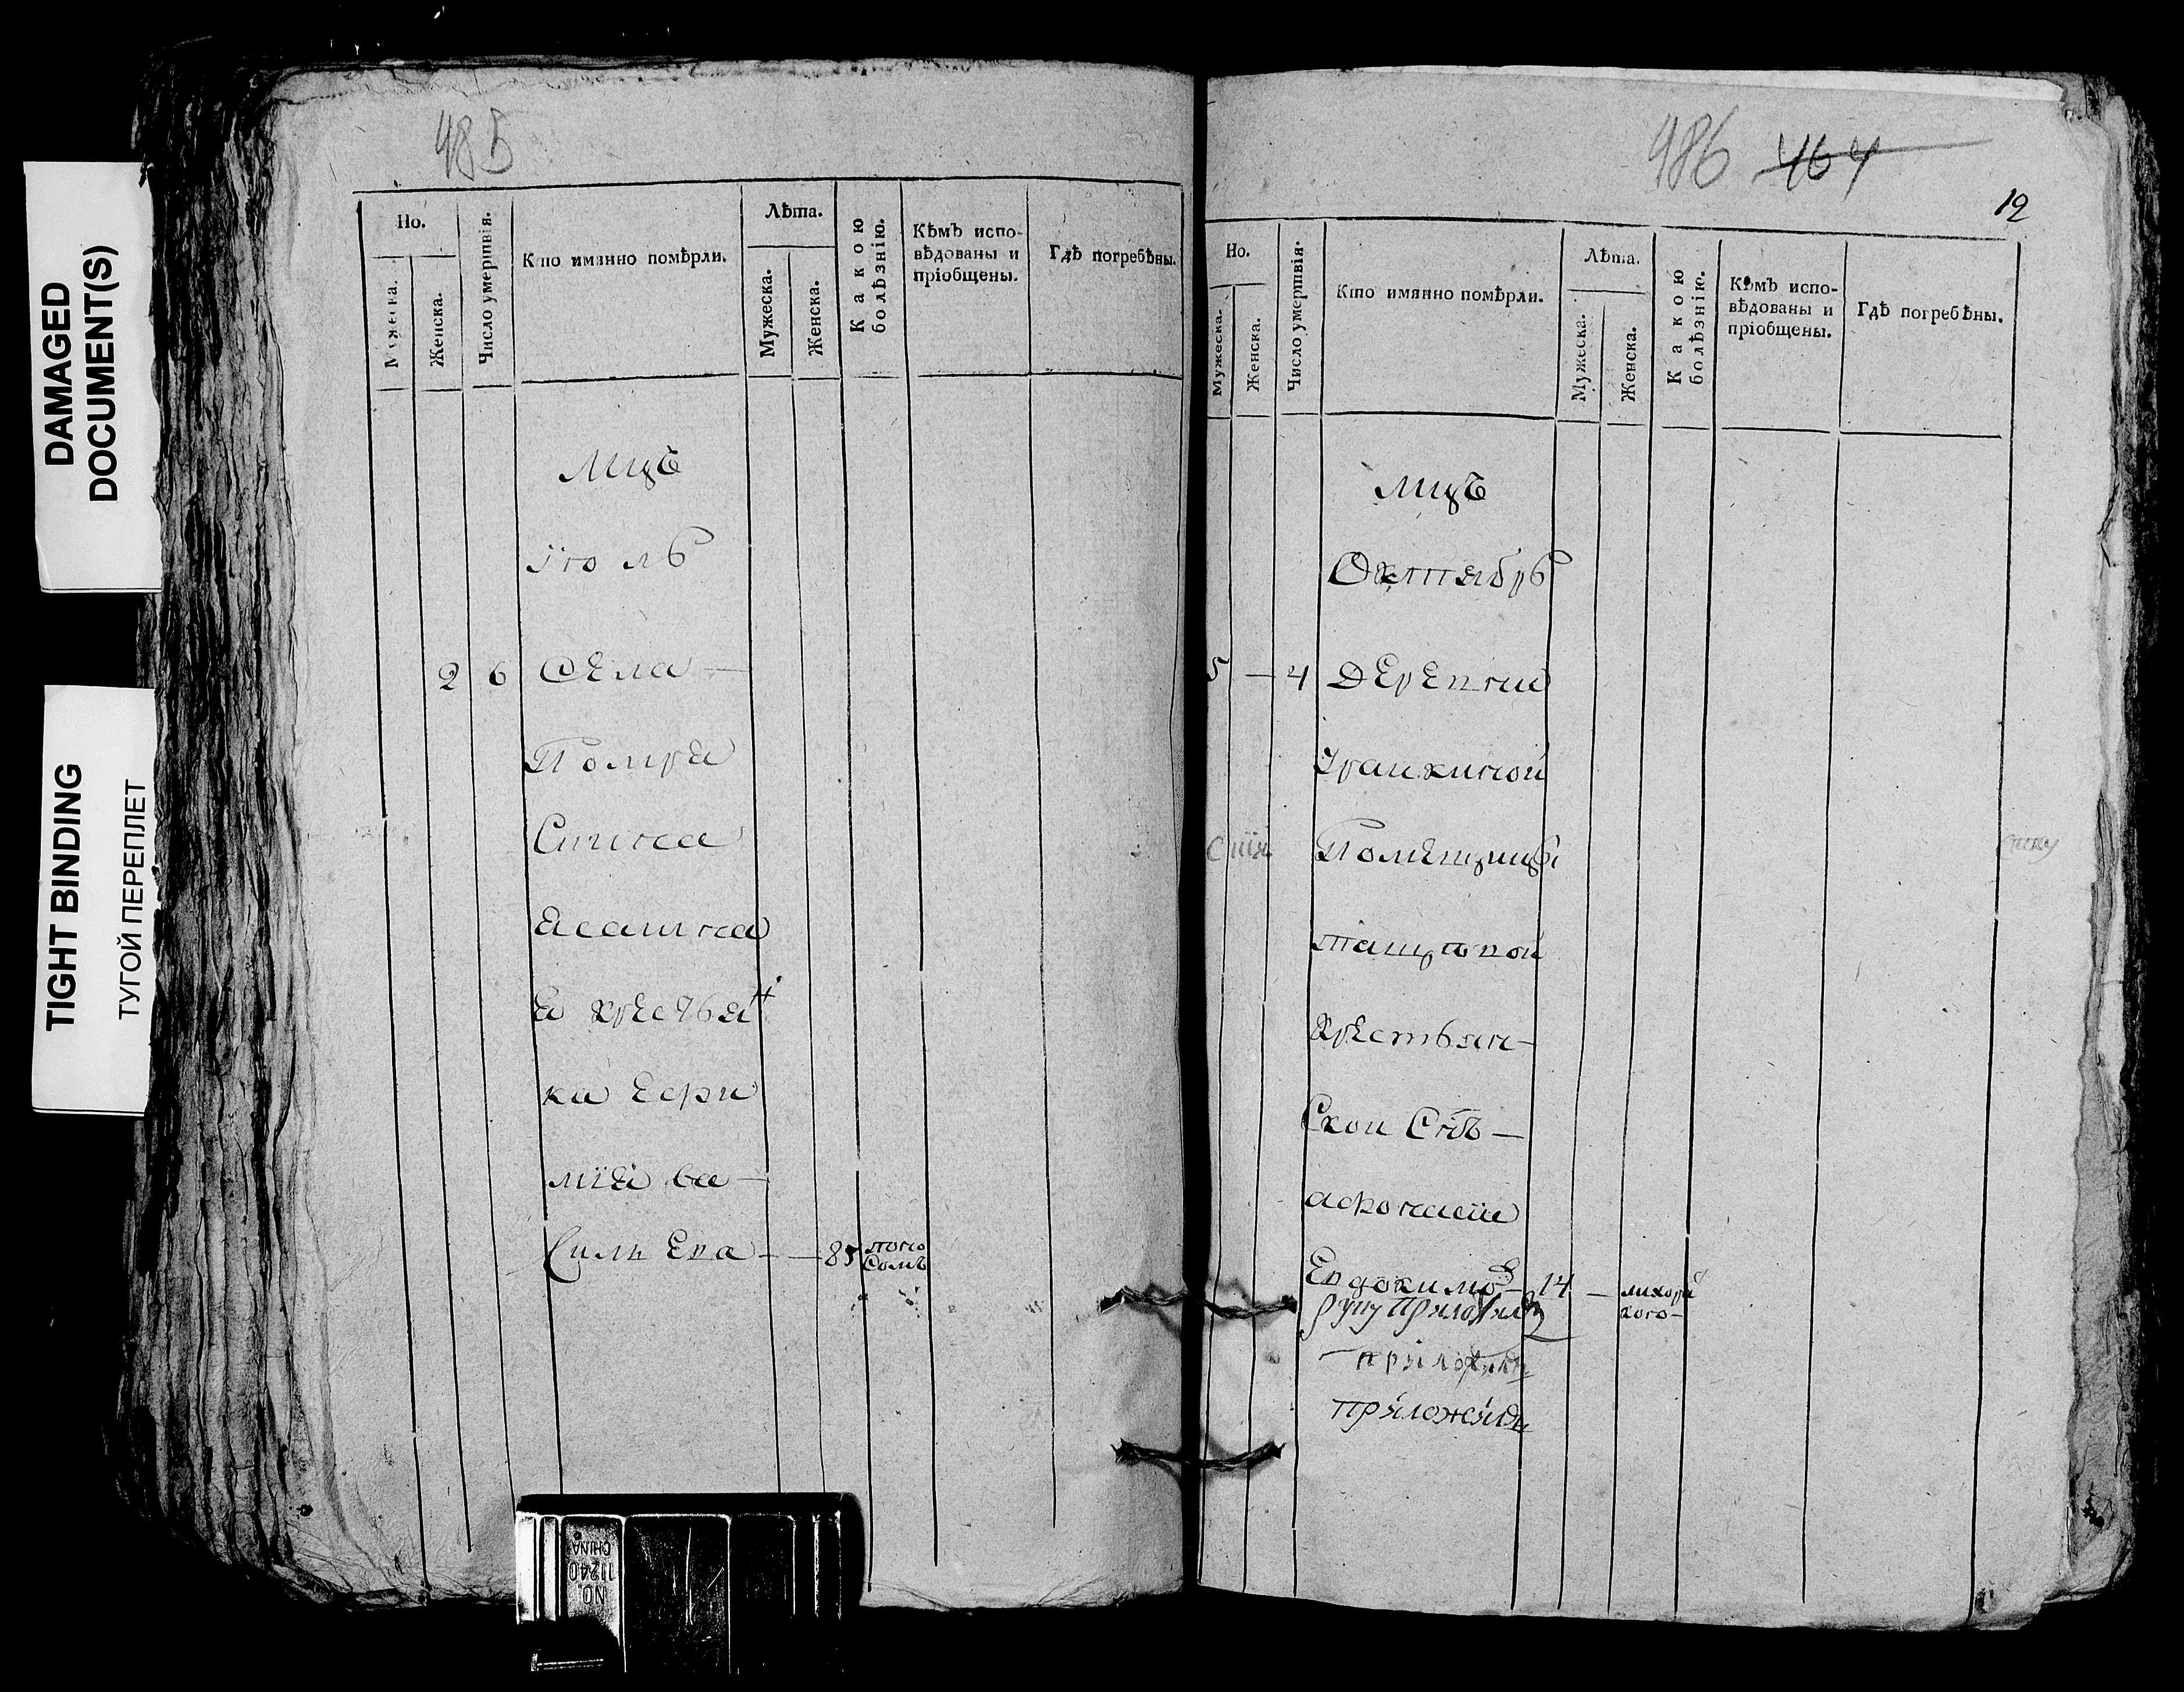 DAMAGED
DOCUMENT(S)
TIGHT BINDING
ТУГОЙ ПЕРЕПЛЕТ
485
Но.
Мужеска.
Женска.
Число умершвія.
Кто имянно помѣрли.
Лѣта.
Мужеска.
Женска.
Какою болѣзнію.
Кѣмъ испо-
вѣдованы и
пріобщены.
Гдѣ погребѣны.
Мцъ
Іюль
2 6 Села —
Помра
ка Ефри
мія ва —
Силь Ева — — 85 поно
сомъ
486 464
12
Но.
Мужеска.
Женска.
Число умершвія.
Кто имянно помѣрли.
Лѣта.
Мужеска.
Женска.
Какою болѣзнію.
Кѣмъ испо-
вѣдованы и
пріобщены.
Гдѣ погребѣны.
Мцъ
Октябрь
5 — 4 Деревни
Помещицы
Крестьян —
Скои Снъ —
афонасіи
Евдокимов 14 — лихора
кого —
руку Приложилъ
приложилъ
NO.
11240
CHINA